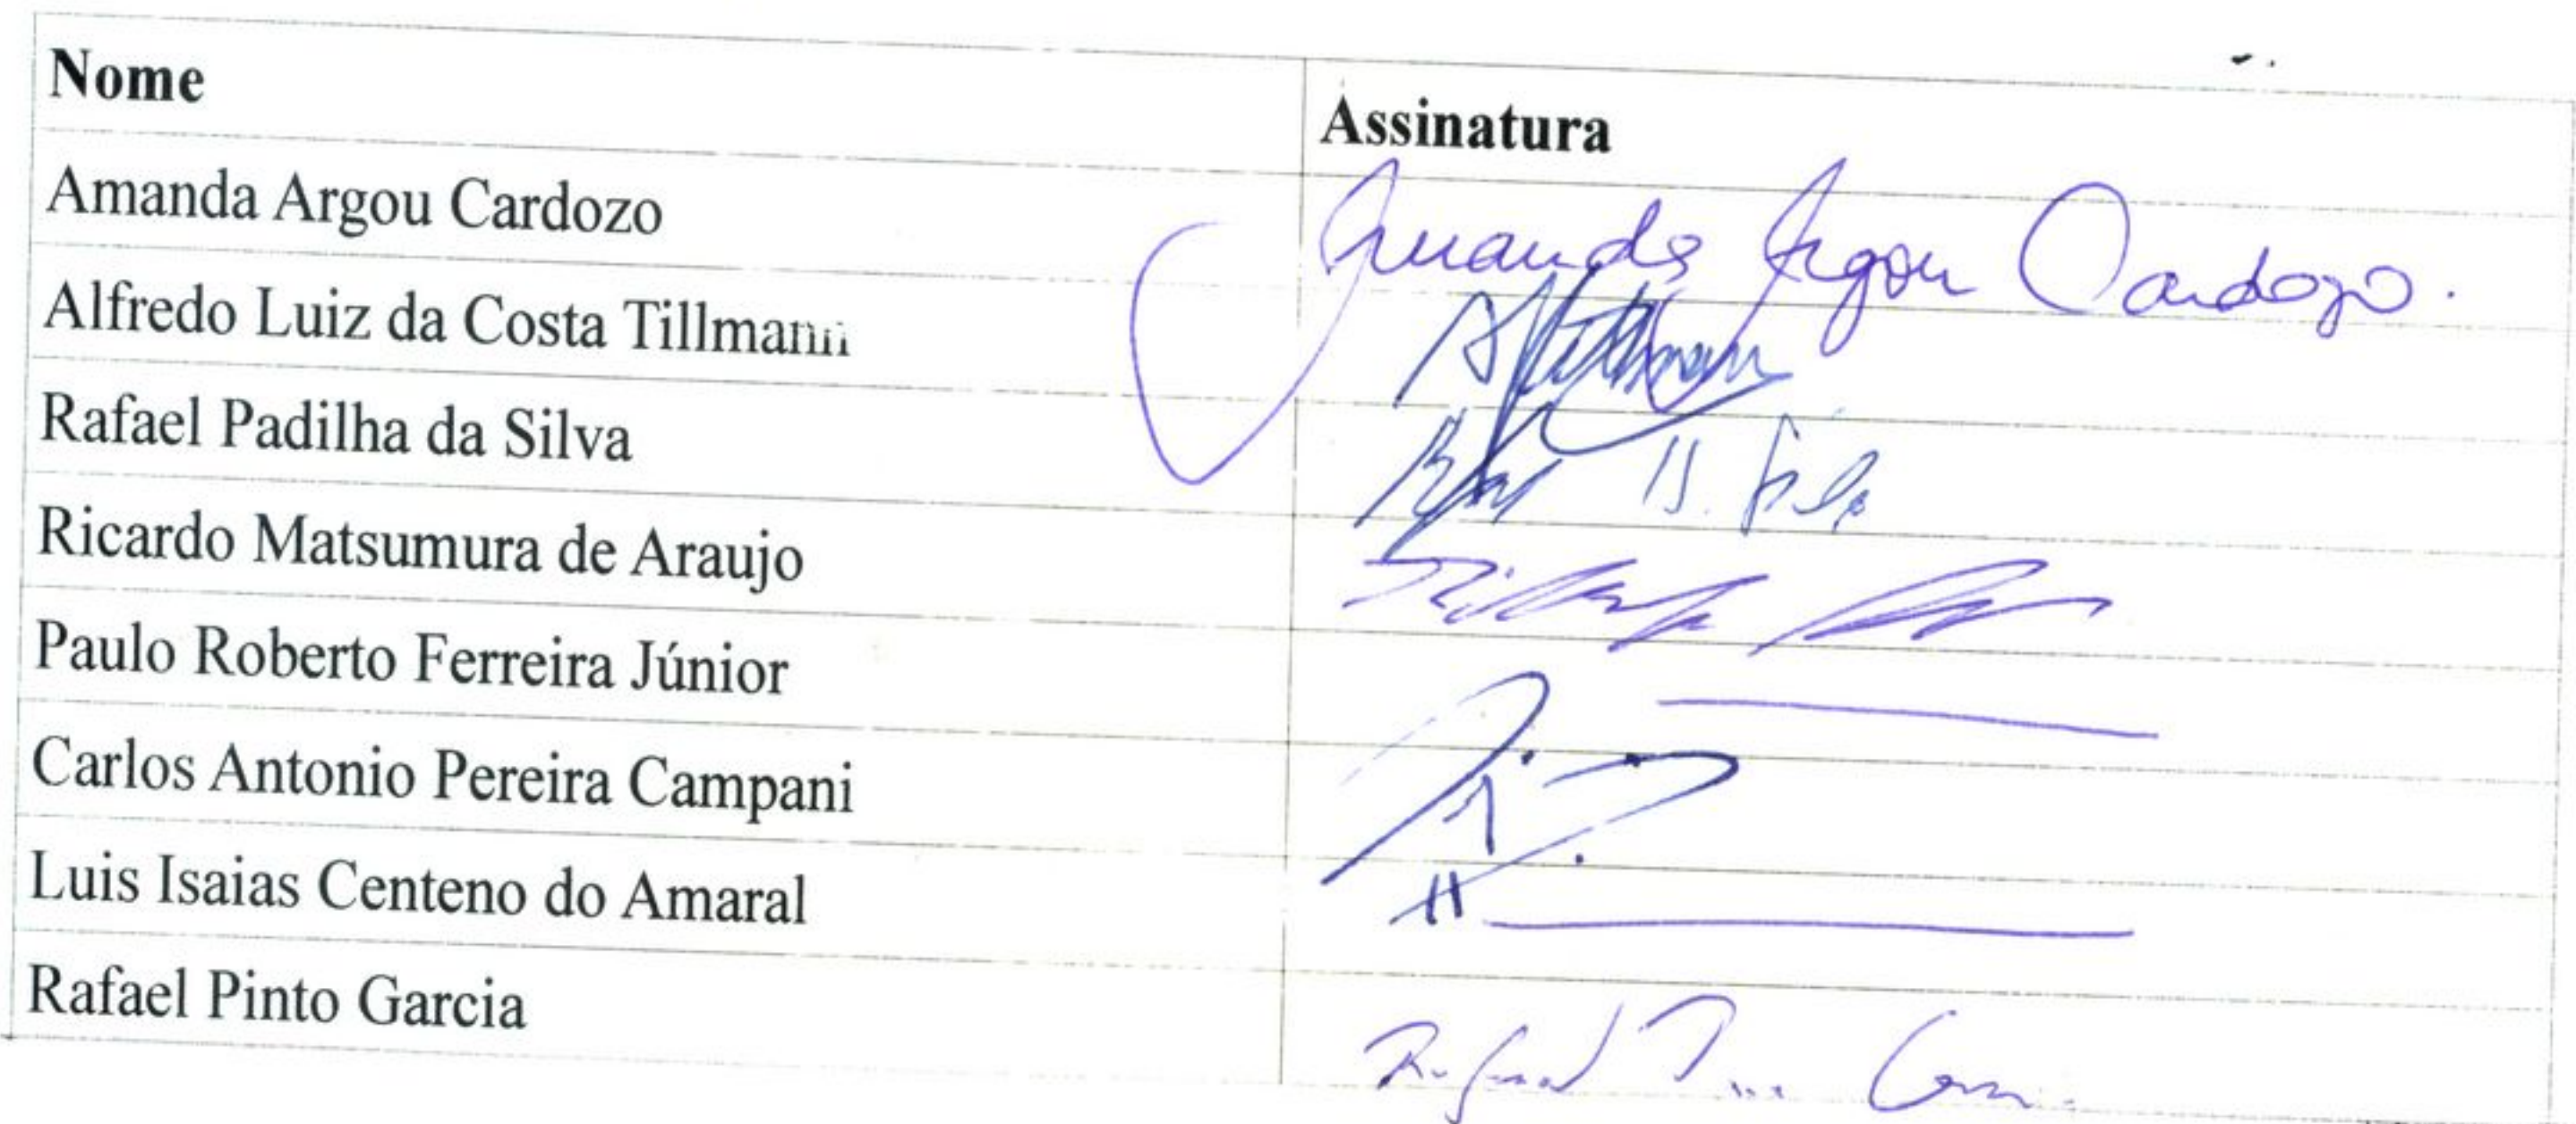 Nome Assinatura
Amanda Argou Cardozo Amanda Argou Cardozo.
Alfredo Luiz da Costa Tillmann
Rafael Padilha da Silva
Ricardo Matsumura de Araujo
Paulo Roberto Ferreira Júnior
Carlos Antonio Pereira Campani
Luis Isaias Centeno do Amaral
Rafael Pinto Garcia